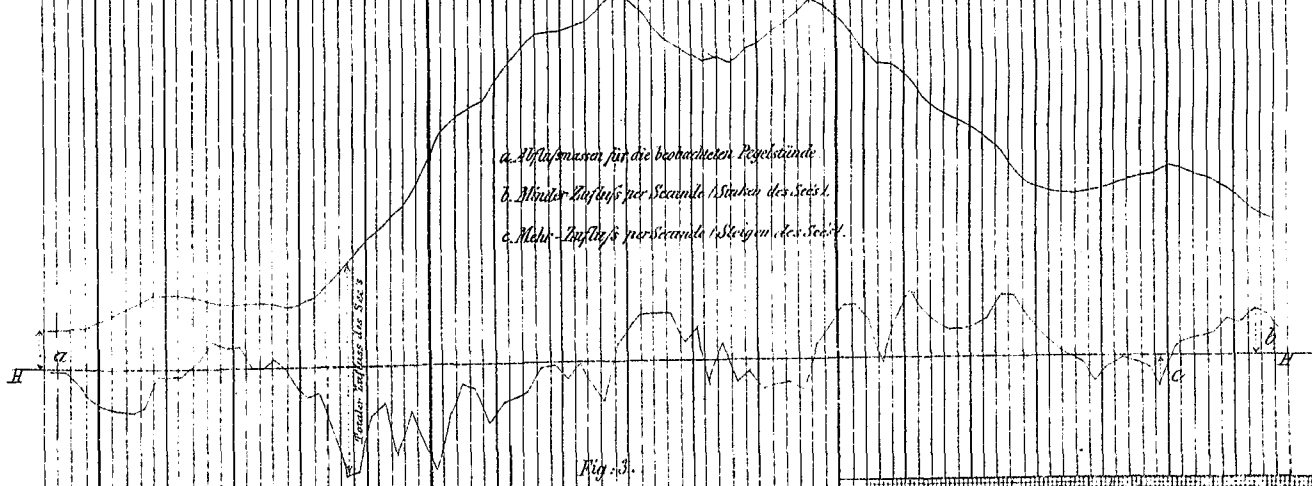 a. Abflußmassen für die beobachteten Pegelstände
b. Minder-Zufluß per Secunde /Sinken des See's/.
c. Mehr-Zufluß per Secunde /Steigen des See's/.
Totaler Zufluss des See's
a
b
H
H
c.
Fig: 3.